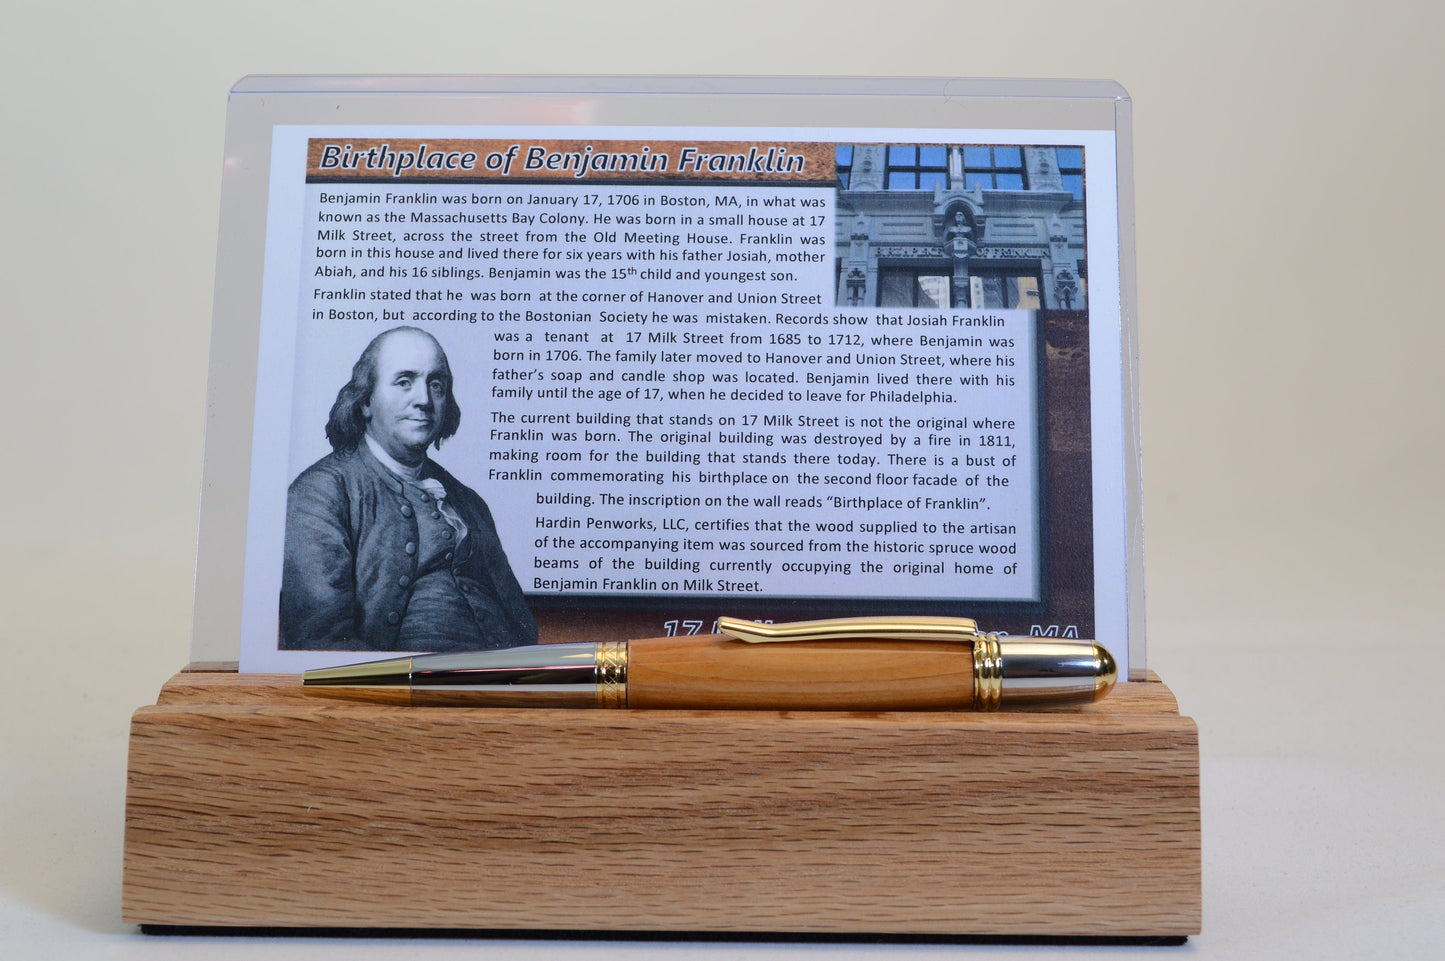 Birthplace of Benjamin Franklin
Benjamin Franklin was born on January 17, 1706 in Boston, MA, in what was
known as the Massachusetts Bay Colony. He was born in a small house at 17
Milk Street, across the street from the Old Meeting House. Franklin was
born in this house and lived there for six years with his father Josiah, mother
Abiah, and his 16 siblings. Benjamin was the 15th child and youngest son.
BIRTHPLACE OF FRANKLIN
Franklin stated that he was born at the corner of Hanover and Union Street
in Boston, but according to the Bostonian Society he was mistaken. Records show that Josiah Franklin
was a tenant at 17 Milk Street from 1685 to 1712, where Benjamin was
born in 1706. The family later moved to Hanover and Union Street, where his
father's soap and candle shop was located. Benjamin lived there with his
family until the age of 17, when he decided to leave for Philadelphia.
The current building that stands on 17 Milk Street is not the original where
Franklin was born. The original building was destroyed by a fire in 1811,
making room for the building that stands there today. There is a bust of
Franklin commemorating his birthplace on the second floor facade of the
building. The inscription on the wall reads “Birthplace of Franklin”.
Hardin Penworks, LLC, certifies that the wood supplied to the artisan
of the accompanying item was sourced from the historic spruce wood
beams of the building currently occupying the original home of
Benjamin Franklin on Milk Street.
17 MA